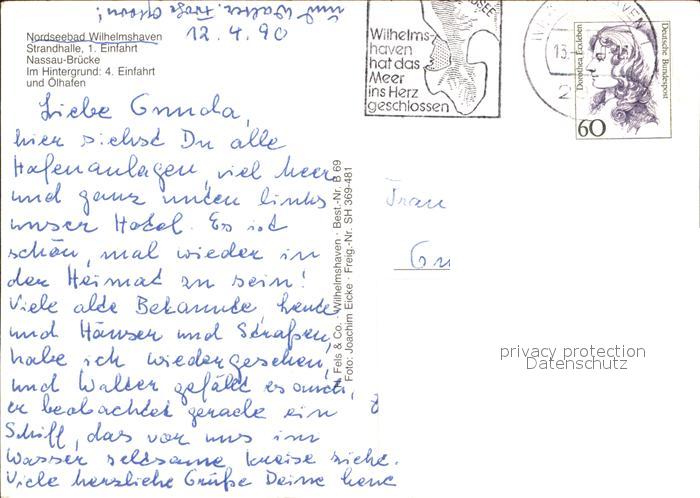 12.4.90
Nordseebad Wilhelmshaven
Strandhalle, 1. Einfahrt
Nassau-Brücke
Im Hintergrund: 4. Einfahrt
und Ölhafen
Liebe Gunda,
hier siehst Du alle
Hafenanlagen, viel Meer
und ganz unten links
unser Hotel. Es ist
schön, mal wieder in
der Heimat zu sein!
Viele alte Bekannte, heute
und Häuser und Straßen,
habe ich wiedergesehen,
und Walter gefällt es auch,
er beobachtet gerade ein
Schiff, das vor uns im
Wasser seltsame Kreise zieht.
Viele herzliche Grüße Deine
und Walter. Frohe Ostern!
Fels & Co. · Wilhelmshaven · Best.-Nr. B 69
Foto: Joachim Eicke · Freig.-Nr. SH 369-481
Wilhelms-
haven
hat das
Meer
ins Herz
geschlossen
Dorothea Erxleben
Deutsche Bundespost
60
Frau
privacy protection
Datenschutz